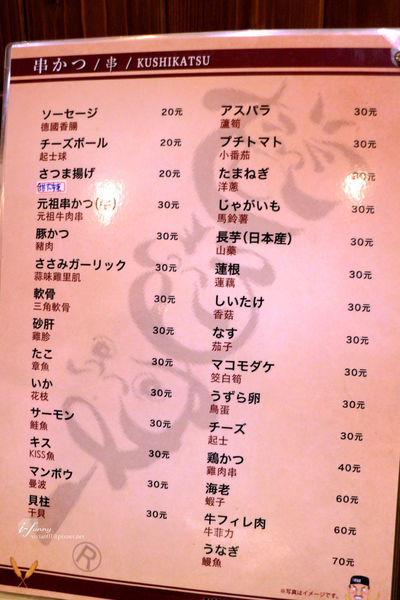 串かつ / 串 / KUSHIKATSU
ソーセージ 20元
德國香腸
チーズボール 20元
起士球
さつま揚げ 20元
元祖串かつ(牛) 30元
元祖牛肉串
豚かつ 30元
豬肉
ささみガーリック 30元
蒜味雞里肌
軟骨 30元
三角軟骨
砂肝 30元
雞胗
たこ 30元
章魚
いか 30元
花枝
サーモン 30元
鮭魚
キス 30元
KISS魚
マンボウ 30元
曼波
貝柱 30元
干貝
アスパラ 30元
蘆筍
プチトマト 30元
小番茄
たまねぎ 30元
洋蔥
じゃがいも 30元
馬鈴薯
長芋(日本産) 30元
山藥
蓮根 30元
蓮藕
しいたけ 30元
香菇
なす 30元
茄子
マコモダケ 30元
筊白筍
うずら卵 30元
鳥蛋
チーズ 30元
起士
鶏かつ 40元
雞肉串
海老 60元
蝦子
牛フィレ肉 60元
牛菲力
うなぎ 70元
鰻魚
®
※写真はイメージです。